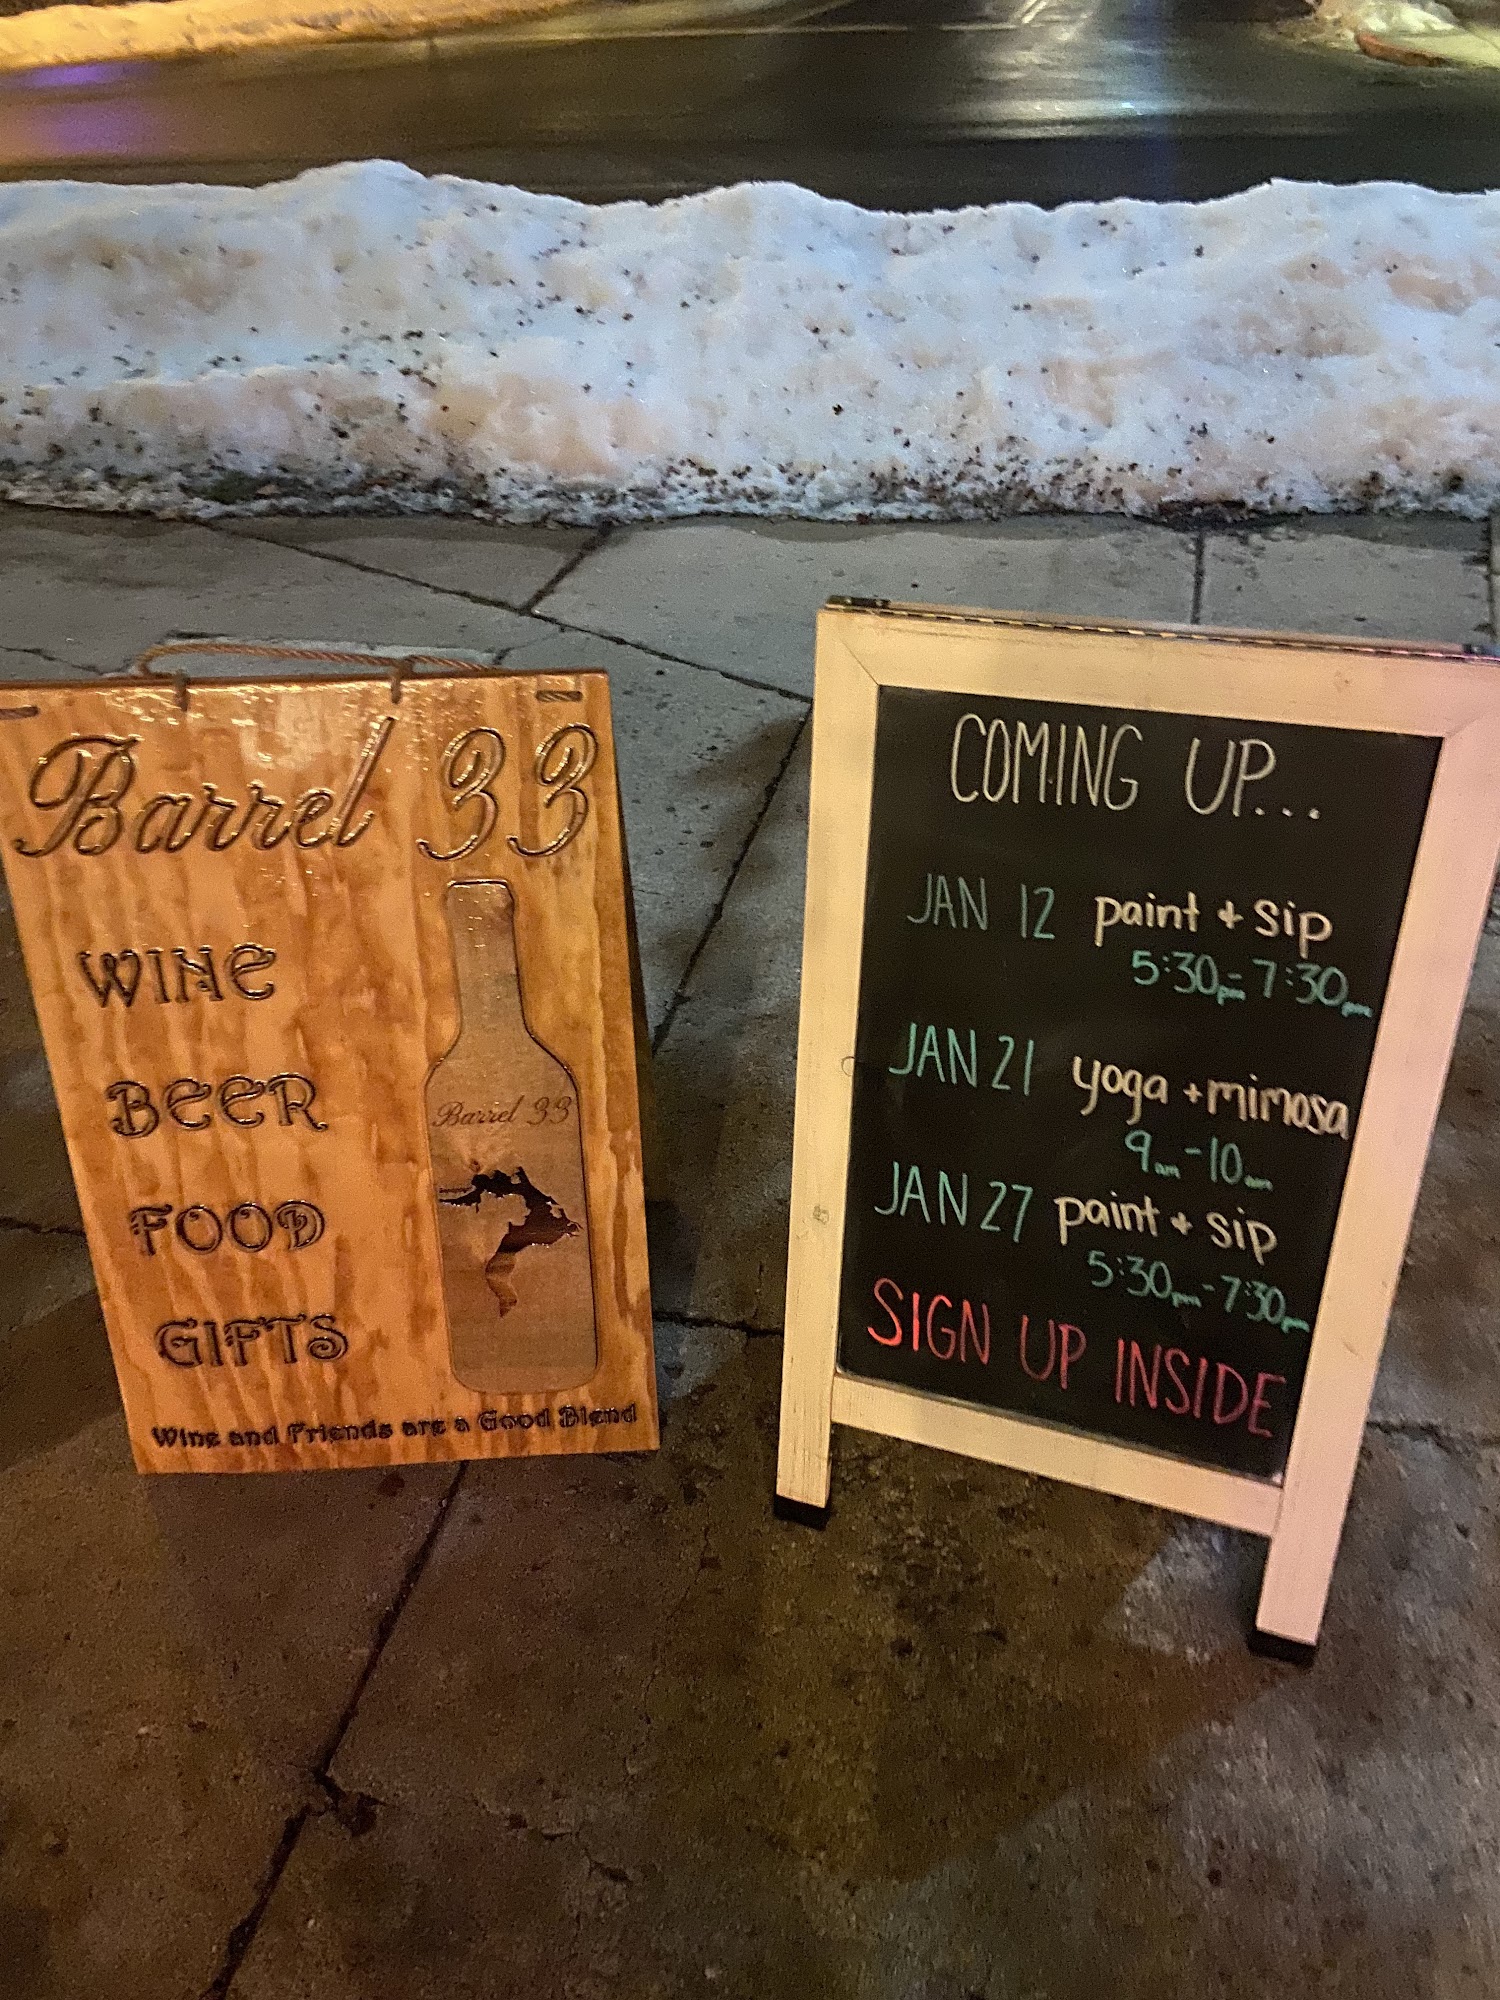 Barrel 33
WINE
BEER
FOOD
GIFTS
Barrel 33
Wine and Friends are a Good Blend
COMING UP...
JAN 12 paint + sip
5:30pm - 7:30pm
JAN 21 yoga + mimosa
9am - 10am
JAN 27 paint + sip
5:30pm - 7:30pm
SIGN UP INSIDE